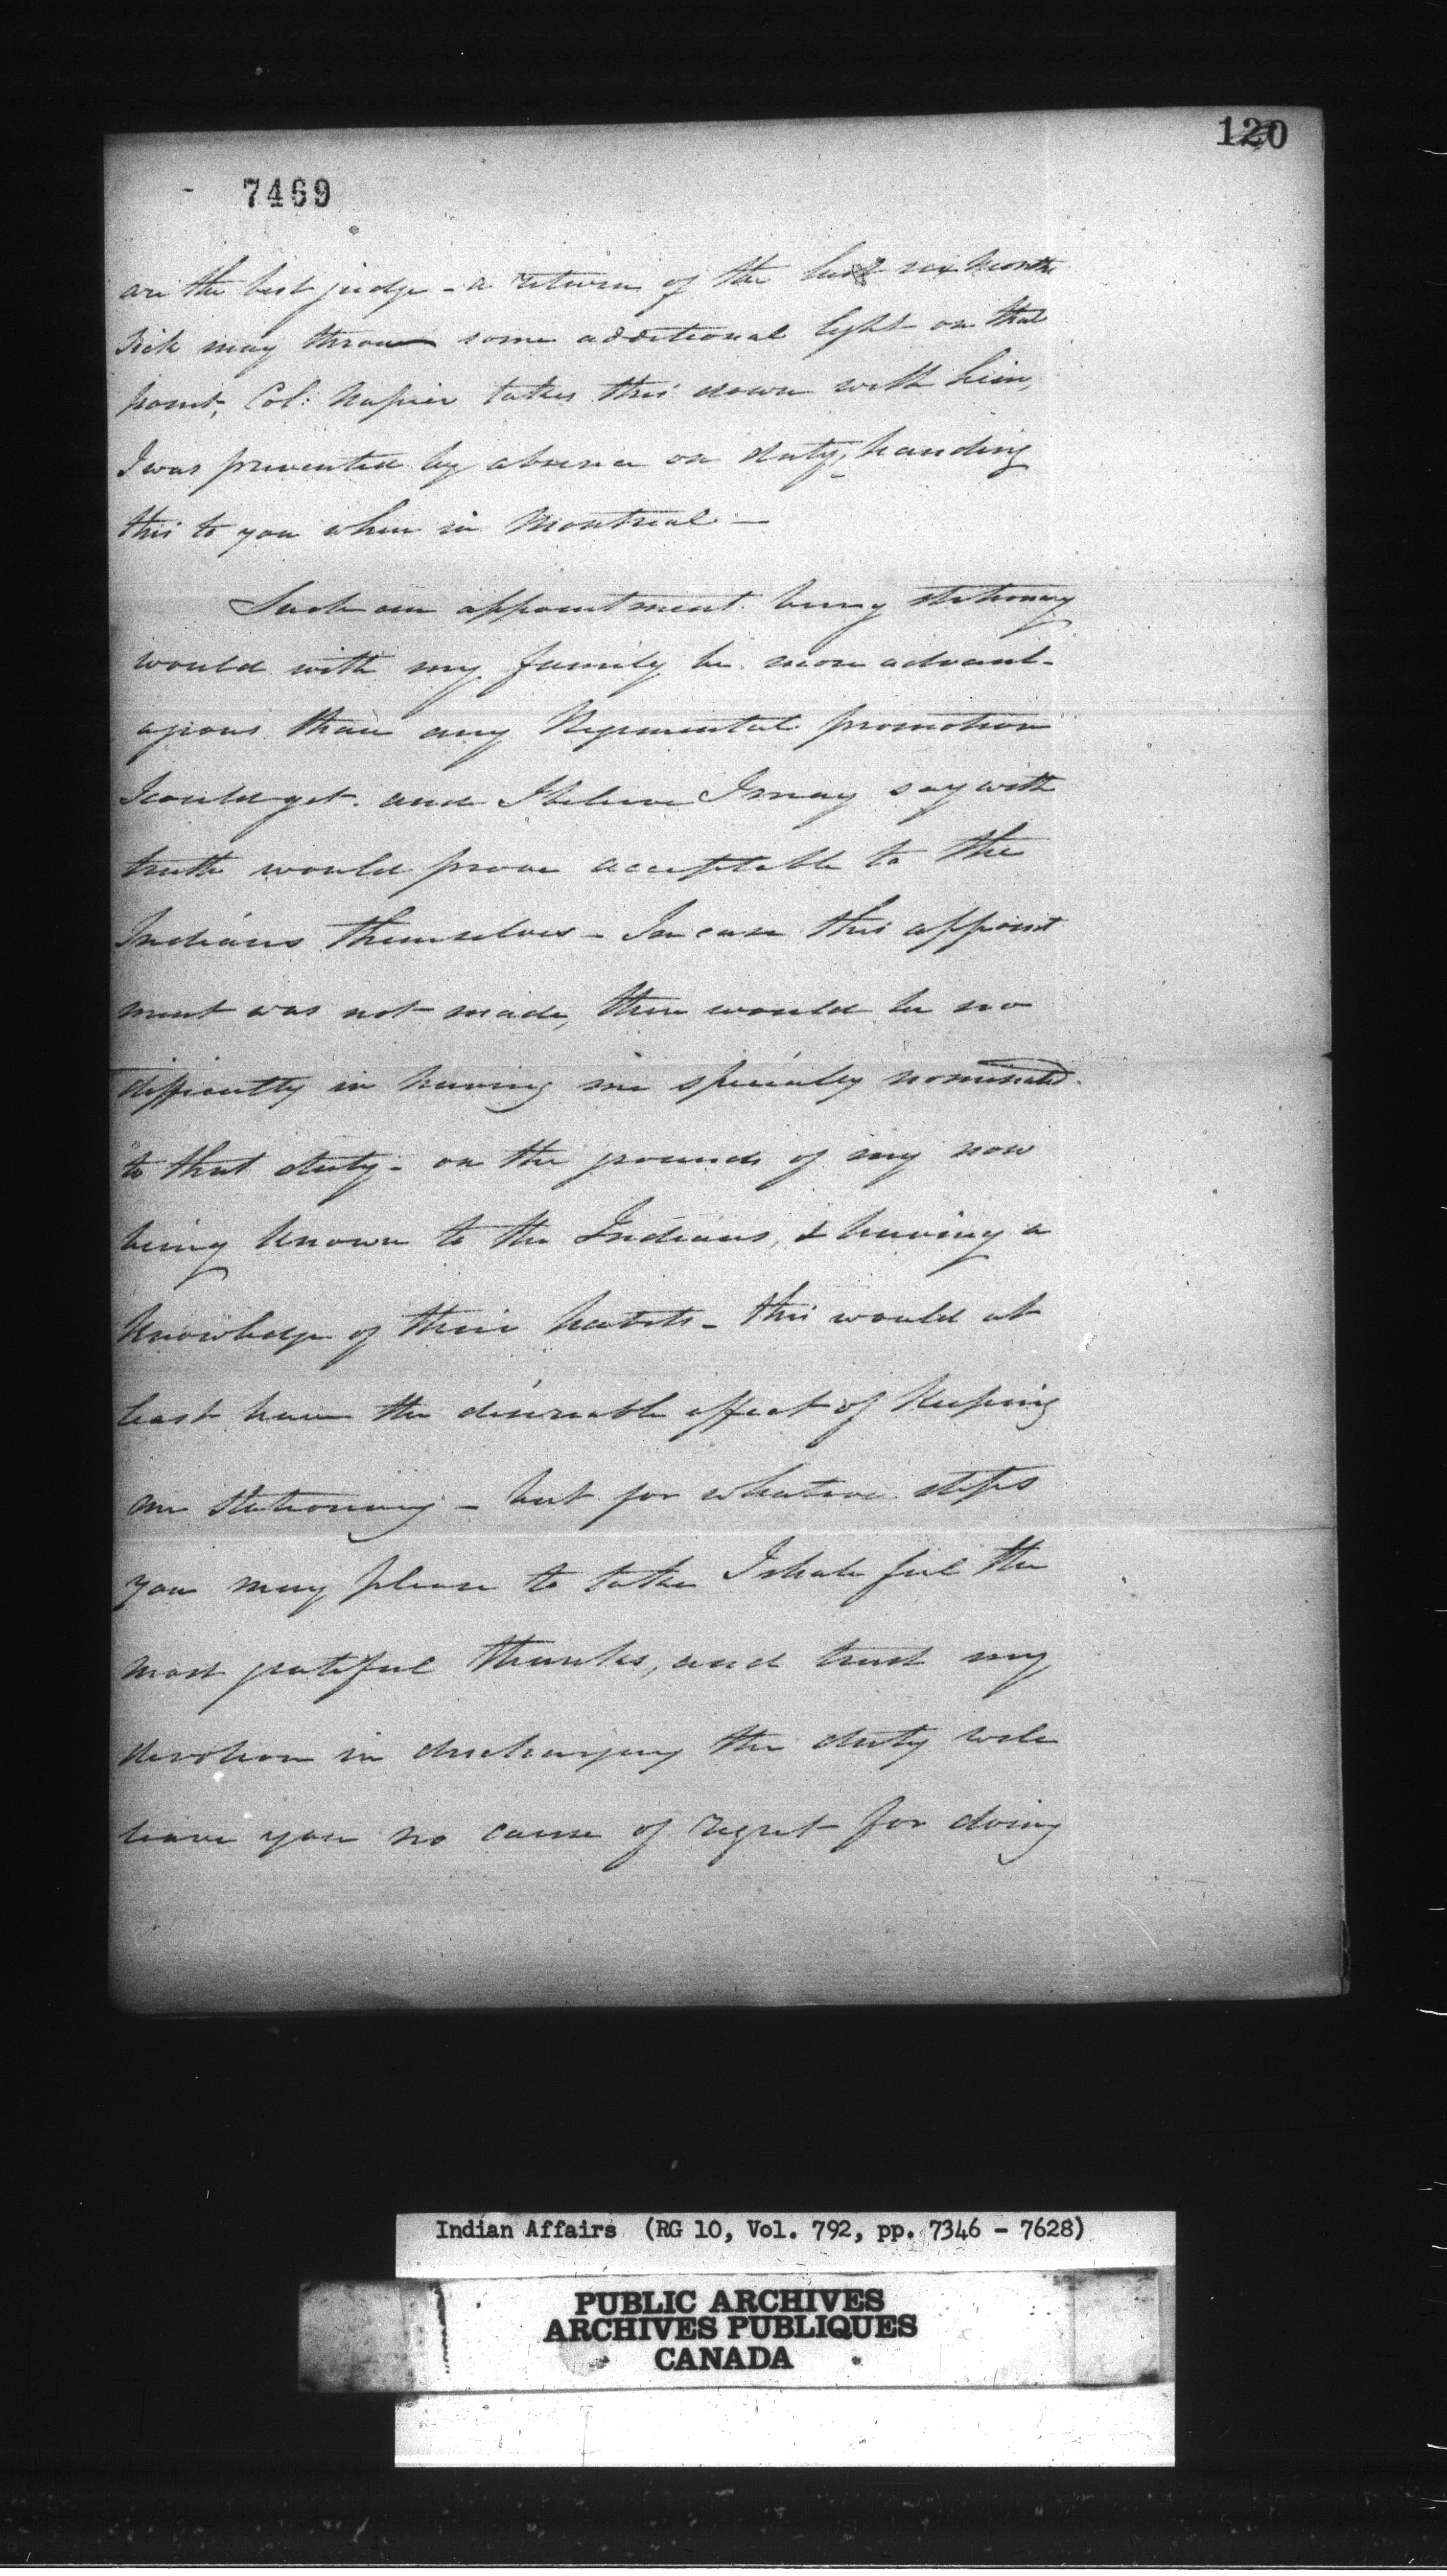 120
7469
are the best judge - a return of the last six Months
Sick may throw some additional light on that
point, Col: Napier takes this down with him,
I was prevented by absence on duty, handing
this to you when in Montreal —
Such an appointment being stationary
would with my family be more advant-
ageous than any Regimental promotion
I could get. and I believe I may say with
truth would prove acceptable to the
Indians themselves - In case this appoint
ment was not made, there would be no
difficulty in having me specially nominated
to that duty - on the grounds of my now
being known to the Indians, & having a
knowledge of their habits - this would at
least have the desireable effect of keeping
me stationary - but for whatever steps
you may please to take I shall feel the
most grateful thanks, and trust my
devotion in discharging the duty will
leave you no cause of regret for doing
Indian Affairs (RG 10, Vol. 792, pp. 7346 - 7628)
PUBLIC ARCHIVES
ARCHIVES PUBLIQUES
CANADA